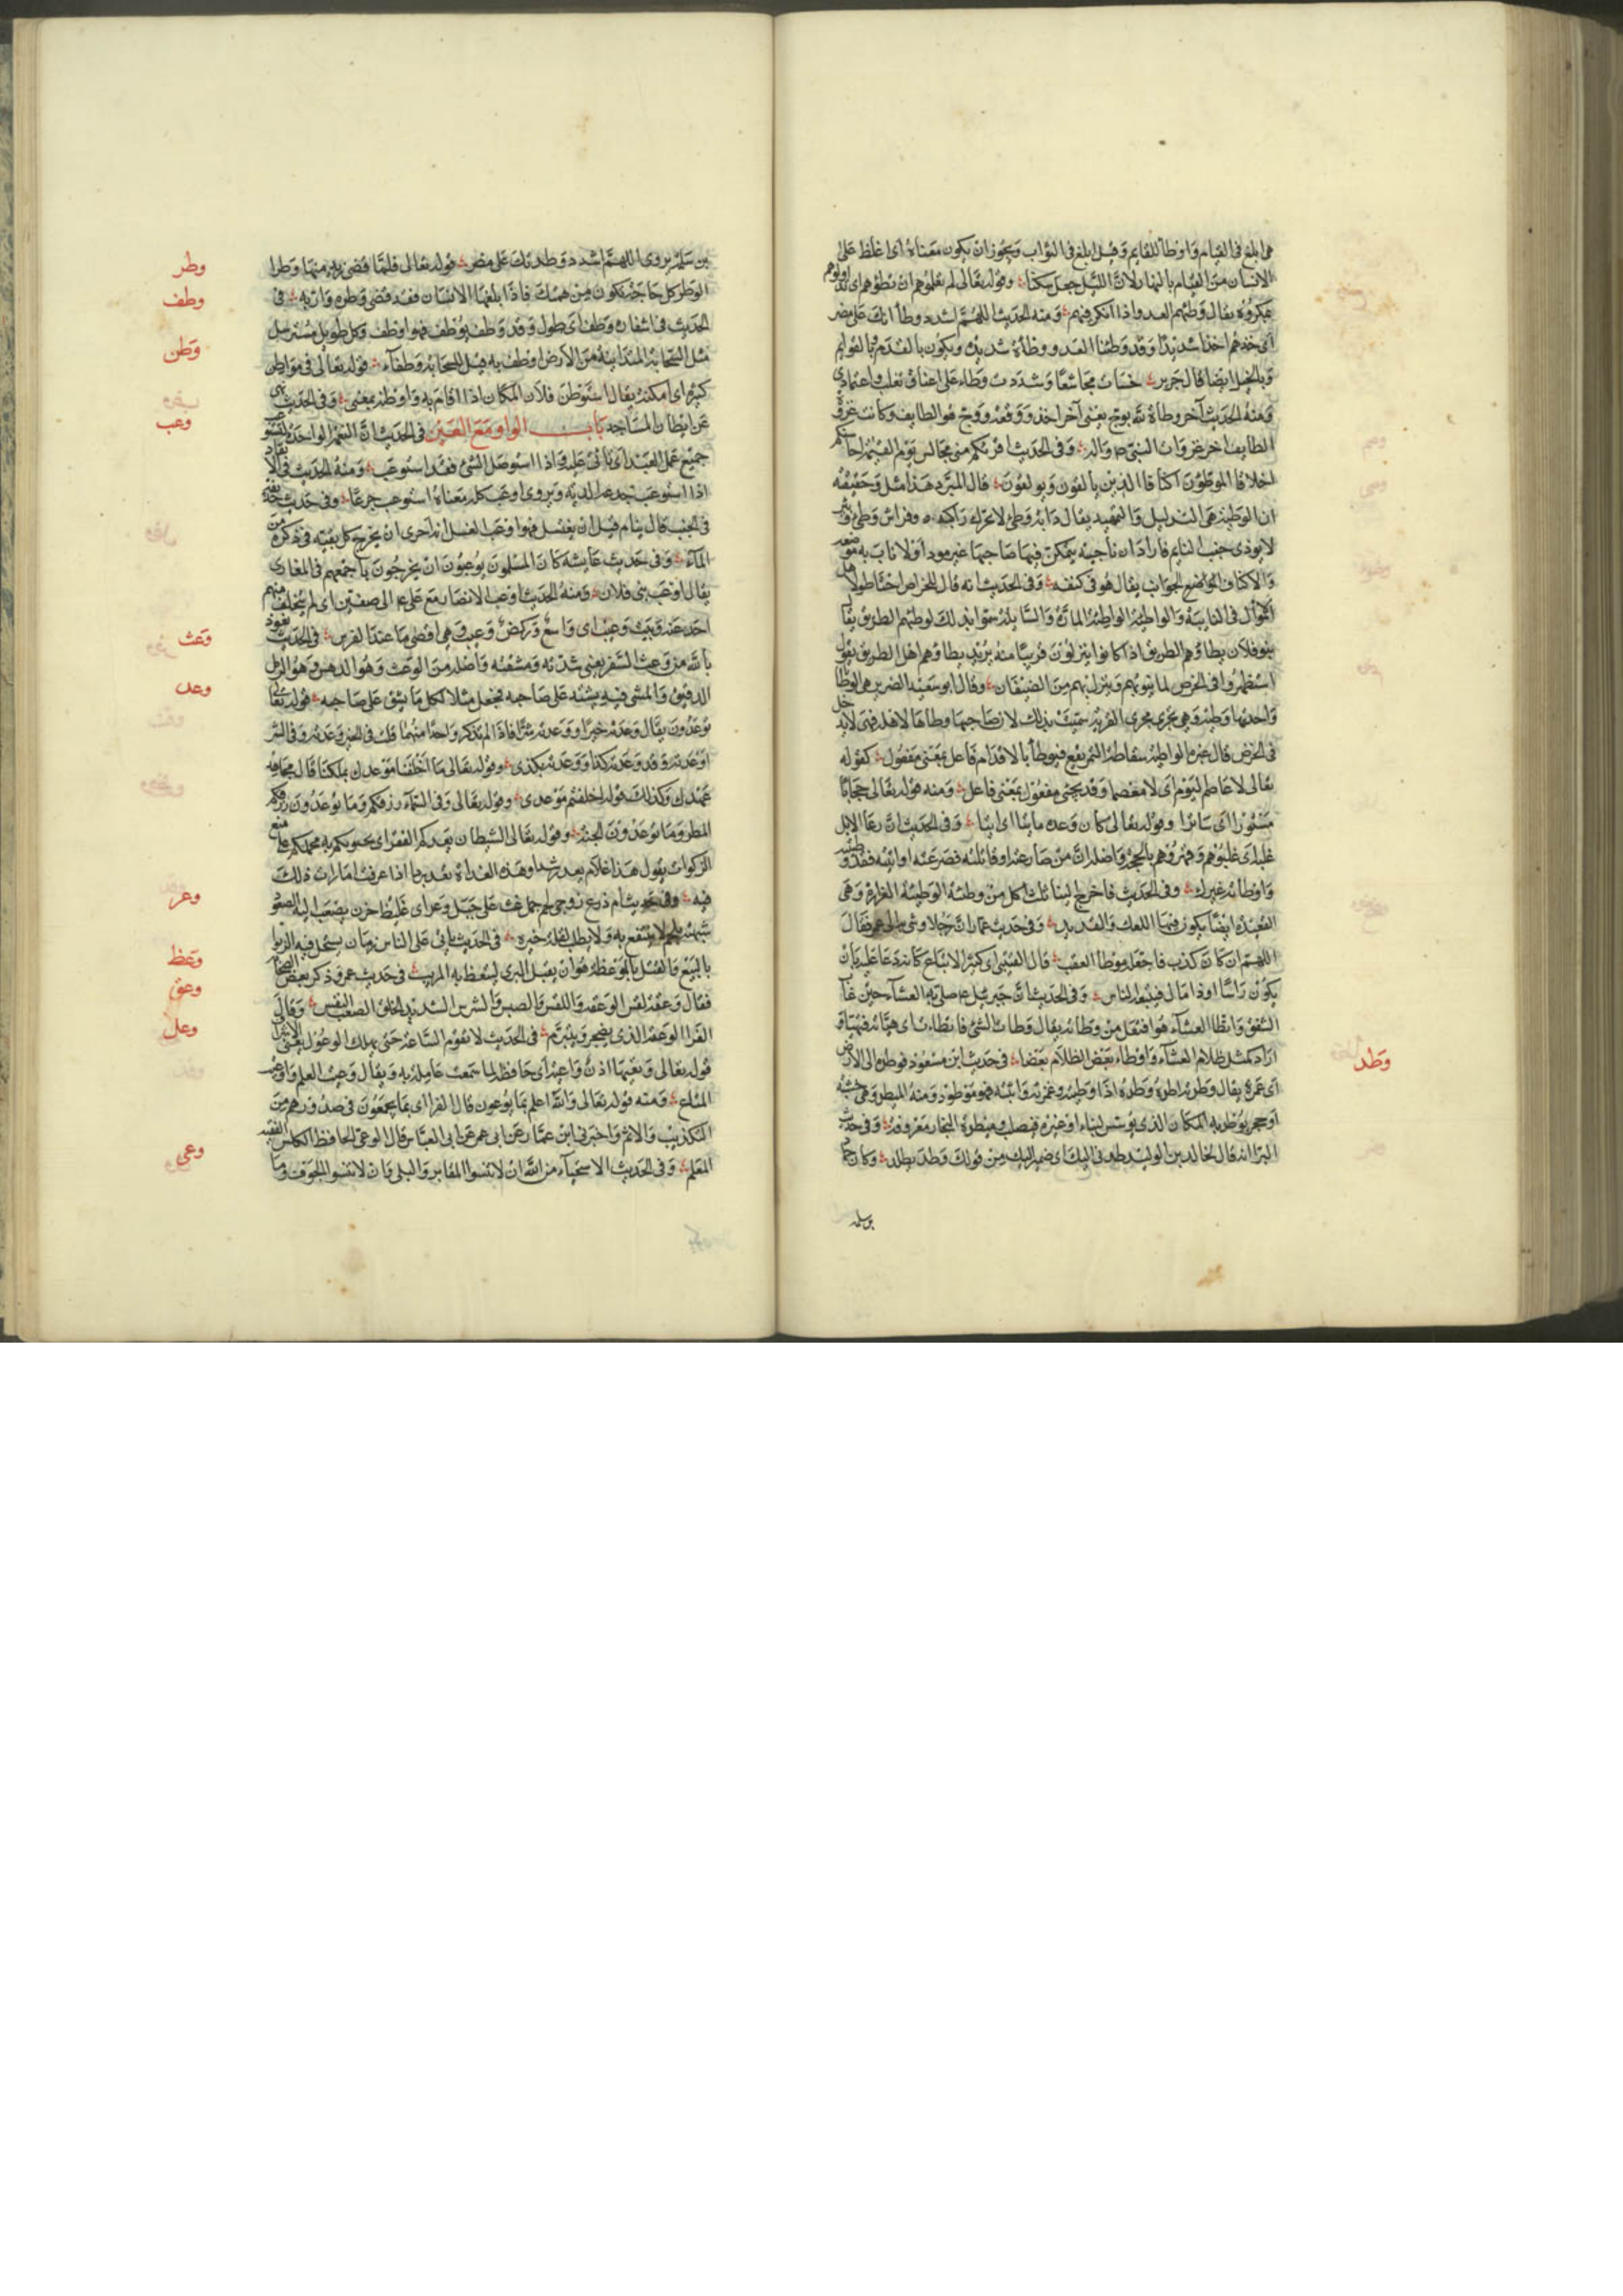 هى ابلغ فى القيام واوطأ للقايم وقيل ابلغ فى الثواب ويجوز ان يكون معناه اى اغلظ على
الانسان من القيام بالنهار لان الليل جعل سكنا وقوله تعالى لم تعلموهم ان تطؤهم اى
بمكروه يقال وطئهم العدو اذا انكى فيهم ومنه الحديث اللهم اشدد وطأتك على مضر
اى خذهم اخذا شديدا وقد وطئنا العدو ووطأة شديدة ويكون بالقدم وبالقوايم
وبالخيل ايضا قال جرير وشددت وطاء على اعناق تغلب واعتمادى
ومنه الحديث آخر وطأة لله بوج يعنى آخر اخذ ووقعة ووج هو الطايف وكانت غزوة
الطايف اخر غزوات النبى وفى الحديث اقربكم منى مجالس يوم القيمة احاسنكم
اخلاقا الموطؤن اكنافا الذين يالفون ويولفون قال المبرد هذا مثل وحقيقته
ان الوطيئة هى التذليل والتمهيد يقال دابة وطئ لا تحرك راكبه وفراش وطئ وثير
لا يوذى جنب النايم فاراد ان ناحيته يتمكن فيها صاحبها غير موذا ولا ناب به موضعه
والاكناف الجوانب يقال هو فى كنفه وفى الحديث انه قال للخراص احتاطوا لاهل
الاموال فى النايبة والواطية الواطية المارة والسابلة سموا بذلك لوطئهم الطريق يقال
بنو فلان يطاؤهم الطريق اذا كانوا ينزلون قريبا منه يريد يطاؤهم اهل الطريق يقول
استظهروا فى الخرص لما ينوبهم وينزل بهم من الضيفان وقال ابو سعيد الضرير هى الوطايا
واحدتها وطية وهى تجرى مجرى العرية سميت بذلك لان صاحبها وطاها لاهله فهى لا تدخل
فى الخرص قال غيره الواطية سقاطة التمر يقع فيوطأ بالاقدام فاعل بمعنى مفعول كقوله
تعالى لا عاصم اليوم اى لا معصوما وقد يجئ مفعول بمعنى فاعل ومنه قوله تعالى حجابا
مستورا اى ساترا وقوله تعالى كان وعده ماتيا اى اتيا وفى الحديث ان رعا الابل
غلبوهم وقهروهم بالحجة واصله ان من صارعته او قاتلته فصرعته او اثبته فقد وطئته
واوطأته غيرك وفى الحديث فاخرج الينا ثلث اكل من وطيئة الوطيئة الغرارة وهى
القعيدة ايضا يكون فيها الكعك والقديد وفى حديث عمار ان رجلا وشى به الى عمر فقال
اللهم ان كان كذب فاجعله موطأ العقب قال القتيبى اى كثير الاتباع كانه دعا عليه بان
يكون راسا او ذا مال فيتبعه الناس وفى الحديث ان جبرئيل صلى به العشاء حين غاب
الشفق واتطا العشاء هو افتعل من وطاته يقال وطات الشئ فاتطاء اى هياته فتهيا
اراد كمل ظلام العشاء واوطاء بعض الظلام بعضا فى حديث ابن مسعود فوطده الى الارض
اى غمزه يقال وطدته اطده وطدة اذا وطيته وغمزته واثبته فهو موطود ومنه الميطدة وهى خشبة
او حجر يوطد به المكان الذى يوسس لبناء او غيره فيصلب وميطدة النجار معروفة وفى حديث
البراء انه قال لخالد بن الوليد طدنى اليك اى ضمنى اليك من قولك وطد يطد وكان
وطد
بن سلمة
بن سلمة يروى اللهم اشدد وطدتك على مضر قوله تعالى فلما قضى زيد منها وطرا
الوطر كل حاجة تكون من همتك فاذا بلغها الانسان فقد قضى وطره واربه فى
الحديث فى اشفاره وطف اى طول وقد وطف يوطف فهو اوطف وكل طويل مسترسل
مثل السحابة المتدانية من الارض اوطف به قيل للسحابة وطفاء قوله تعالى فى مواطن
كثيرة اى امكنة يقال استوطن فلان المكان اذا اقام به واوطن بمعنى وفى الحديث نهى
عن ايطان المساجد باب الواو مع العين فى الحديث ان النعمة الواحدة تستوعب
جميع عمل العبد اى تاتى عليه واذا استوصل الشئ فقد استوعب ومنه الحديث فى الانف
اذا استوعب جدعه الدية ويروى اوعب كله معناه استوعب جدعا وفى حديث حذيفة
فى الجنب قال ينام قبل ان يغتسل فهو اوعب الغسل انه احرى ان يخرج كل بقية فى ذكره من
الماء وفى حديث عايشة كان المسلمون يوعبون ان يخرجون باجمعهم فى المغازى
يقال اوعب بنى فلان ومنه الحديث اوعب الانصار مع على الى صفين اى لم يتخلف منهم
احد عنه وبيت وعيب اى واسع وركض وعيب وهى اقصى ما عند الفرس فى الحديث نعوذ
بالله من وعثاء السفر يعنى شدته ومشقته واصله من الوعث وهو الدهس وهو الرمل
الدقيق والمشى فيه يشتد على صاحبه فجعل مثلا لكل ما يشق على صاحبه قوله تعالى
توعدون يقال وعدته خيرا ووعدته شرا فاذا لم تذكر واحدا منهما قلت فى الخير وعدته وفى الشر
اوعدته وقد وعدته كذا ووعدته بكذى وقوله تعالى ما اخلفنا موعدك بملكنا قال مجاهد
عهدك وكذلك قوله اخلفتم موعدى وقوله تعالى وفى السماء رزقكم وما توعدون رزقكم
المطر وما توعدون الجنة وقوله تعالى الشيطان يعدكم الفقر اى يحملكم على منع
الزكوات يقول هذا غلام يعد رشدا وهذه الغداة تعد بردا اذا عرفت امارات ذلك
فيه وفى حديث ام زرع زوجى لحم جمل غث على جبل وعر اى غليظ حزن يصعب اليه الصعود
شبهته بلحم لا ينتفع به ولا يطلب لقلة خيره فى الحديث ياتى على الناس زمان يستحل فيه الربوا
بالبيع والقتل بالموعظة هو ان يقتل البرى ليتعظ به المريب فى حديث عمر وذكر بعض الصحابة
فقال وعقة لقس الوعقة واللقس والضبس والشرس الشديد الخلق الصعب النفس وقال
الفرا الوعقة الذى يضجر ويتبرم فى الحديث لا تقوم الساعة حتى يهلك الوعول يعنى الاشراف
قوله تعالى وتعيها اذن واعية اى حافظة لما سمعت عاملة به ويقال وعيت العلم واوعيت
المتاع ومنه قوله تعالى والله اعلم بما يوعون قال الفرا اى بما يجمعون فى صدورهم من
التكذيب والاثم واخبرنى ابن عمار عن ابى عمر عن ابى العباس قال الوعى الحافظ الكيس الفقيه
العالم وفى الحديث الاستحياء من الله ان لا تنسوا المقابر والبلى وان لا تنسوا الجوف وما
وطر
وطف
وطن
وعب
وعث
وعد
وعر
وعظ
وعق
وعل
وعى